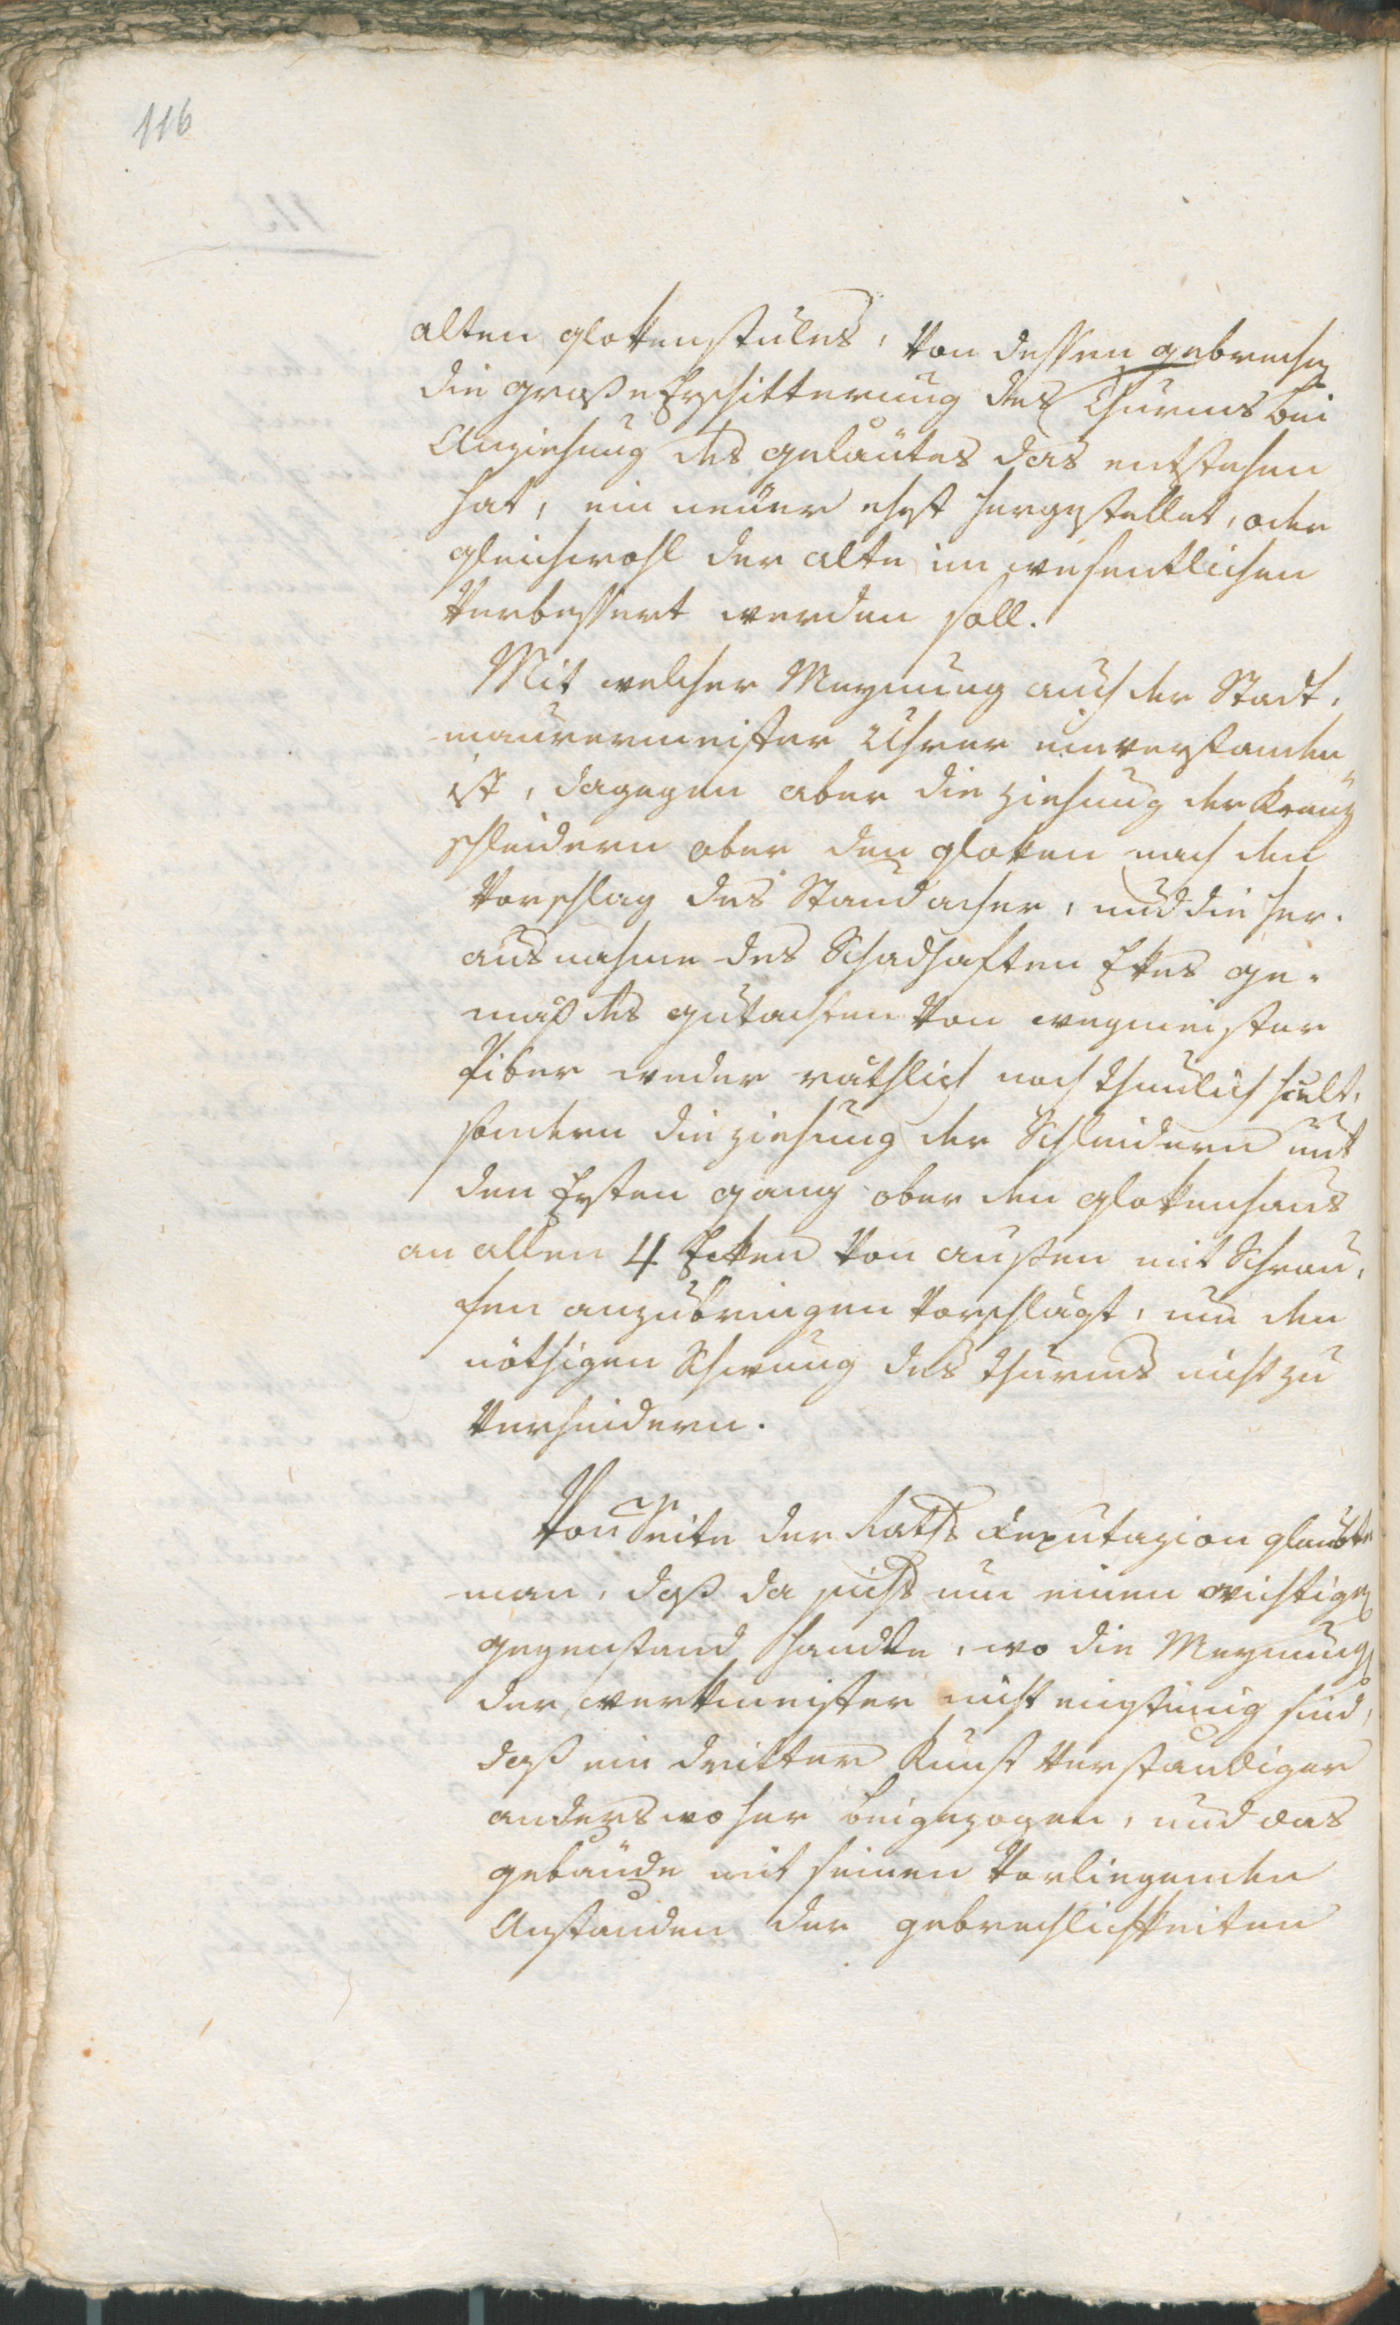 116
alten glokenstules, von dessen gebrechen
die große Erschitterung des Thurms bei
Anziehung des geläutes das entstehen
hat, ein neuer ehest hergestellet, oder
gleichwohl der alte im wesentlichen
verbessert werden soll.
Mit welcher Meynung auch der Stadt,
maurermeister Uhrer einverstanden
ist, dagegen aber die ziehung der Kreuz
schleidern ober den gloken nach den
Vorschlag des Staudacher, und die her-
ausnahme des Schadhaften Ekes ge-
mäß des gutachten von wegmeister
Piber weder räthlich noch thunlich hielt,
sondern die ziehung der Schleidern mit
den Ersten gang ober den glokenhaus
an allen 4 Ecken von außen mit Schrau,
fen anzubringen vorschlägt, um den
nöthigen Schwung des thurms nicht zu
verhindern.
Von Seite der Raths Deputazion glaubte
man, daß da sichs um einen wichtigen
gegenstand handle, wo die Meynung
der werkmeister nicht einstimig sind,
daß ein dritter Kunst verständiger
anderswoher beigezogen, und das
gebäude mit seinen vorliegenden
Anständen der gebrechlichkeiten